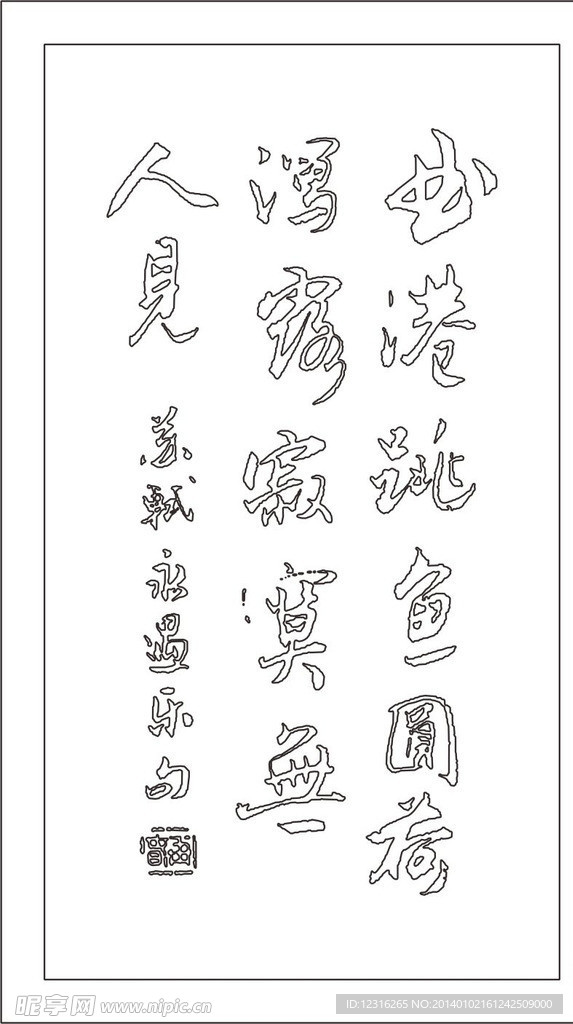 曲港跳鱼圓荷
泻露寂寞無
人見
苏軾永遇乐句
昵享网 www.nipic.cn
ID:12316265 NO:20140102161242509000